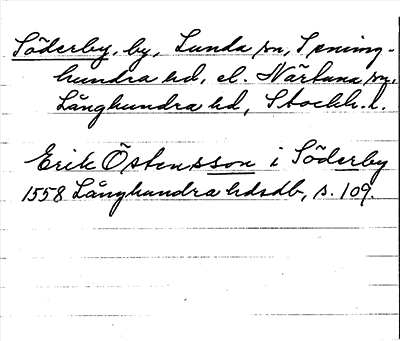 Söderby, by, Lunda sn, Sèming-
hundra hd, el. Närtuna sn,
Långhundra hd, Stockh. l.
Erik Östensson i Söderby
1558 Långhundra hdsdb, s. 109.